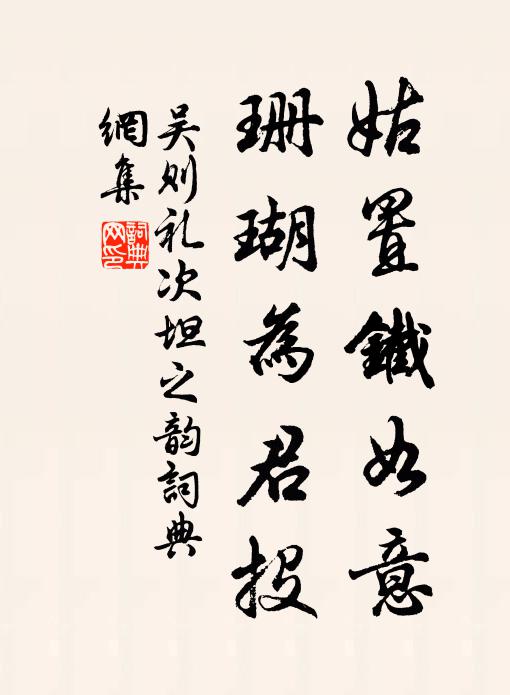 姑置鐵如意
珊瑚為君投
吴则礼次坦之韵詞典
網集
詞典網印